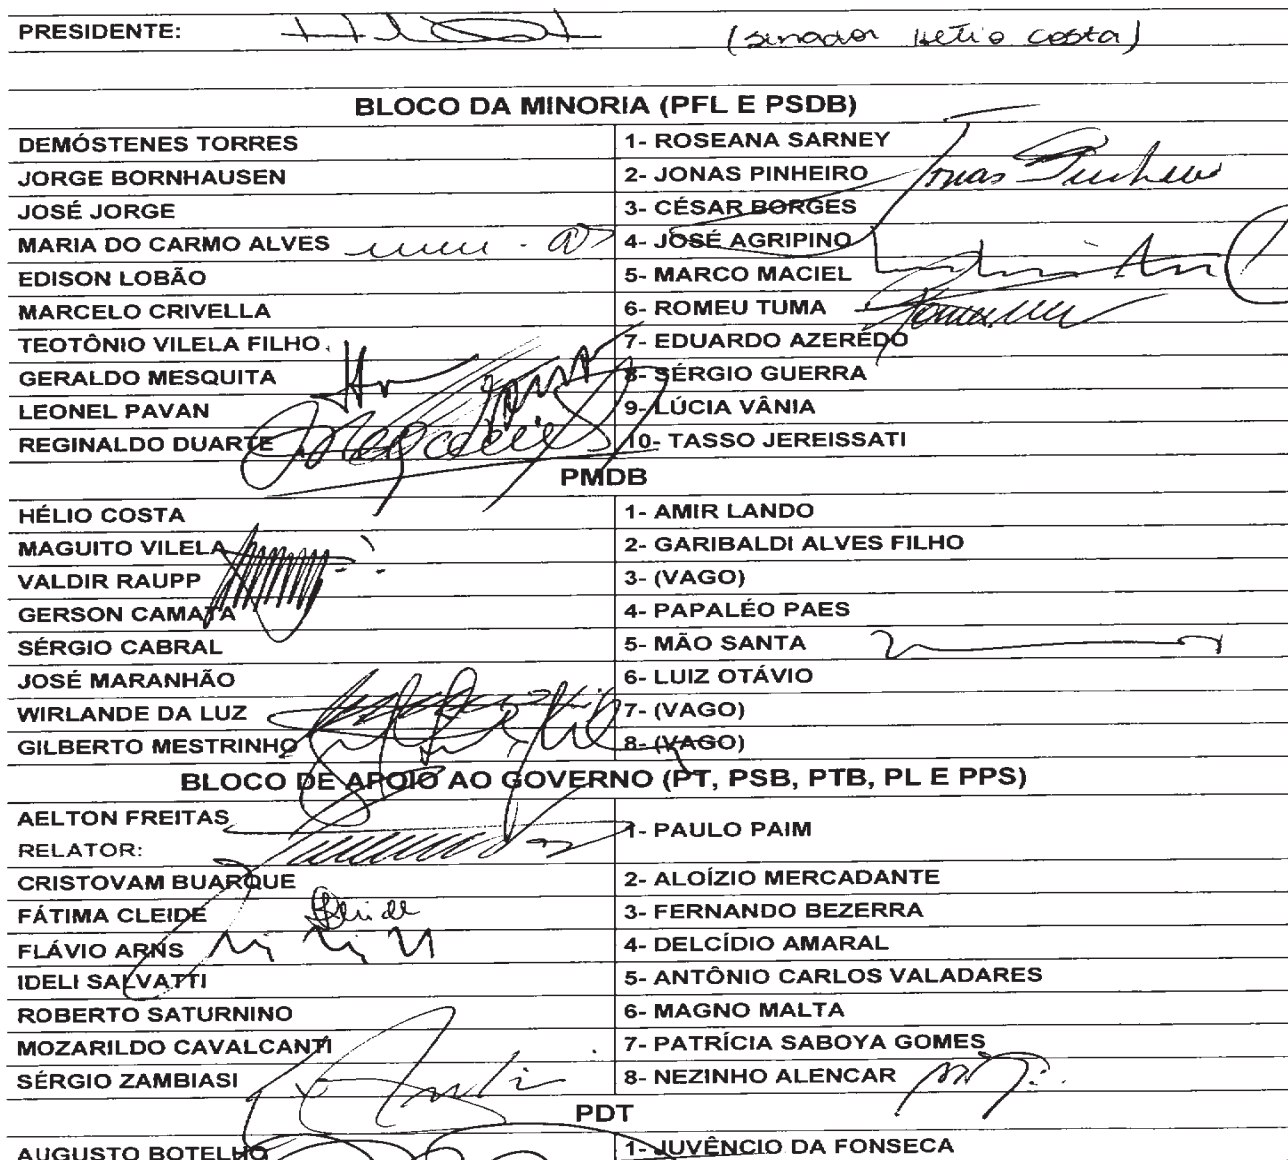 PRESIDENTE: (senador Hélio Costa)
BLOCO DA MINORIA (PFL E PSDB)
DEMÓSTENES TORRES 1- ROSEANA SARNEY
JORGE BORNHAUSEN 2- JONAS PINHEIRO Jonas Pinheiro
JOSÉ JORGE 3- CÉSAR BORGES
MARIA DO CARMO ALVES 4- JOSÉ AGRIPINO
EDISON LOBÃO 5- MARCO MACIEL
MARCELO CRIVELLA 6- ROMEU TUMA
TEOTÔNIO VILELA FILHO 7- EDUARDO AZEREDO
GERALDO MESQUITA 8- SÉRGIO GUERRA
LEONEL PAVAN 9- LÚCIA VÂNIA
REGINALDO DUARTE 10- TASSO JEREISSATI
PMDB
HÉLIO COSTA 1- AMIR LANDO
MAGUITO VILELA 2- GARIBALDI ALVES FILHO
VALDIR RAUPP 3- (VAGO)
GERSON CAMATA 4- PAPALÉO PAES
SÉRGIO CABRAL 5- MÃO SANTA
JOSÉ MARANHÃO 6- LUIZ OTÁVIO
WIRLANDE DA LUZ 7- (VAGO)
GILBERTO MESTRINHO 8- (VAGO)
BLOCO DE APOIO AO GOVERNO (PT, PSB, PTB, PL E PPS)
AELTON FREITAS
RELATOR: 1- PAULO PAIM
CRISTOVAM BUARQUE 2- ALOÍZIO MERCADANTE
FÁTIMA CLEIDE 3- FERNANDO BEZERRA
FLÁVIO ARNS 4- DELCÍDIO AMARAL
IDELI SALVATTI 5- ANTÔNIO CARLOS VALADARES
ROBERTO SATURNINO 6- MAGNO MALTA
MOZARILDO CAVALCANTI 7- PATRÍCIA SABOYA GOMES
SÉRGIO ZAMBIASI 8- NEZINHO ALENCAR
PDT
AUGUSTO BOTELHO 1- JUVÊNCIO DA FONSECA